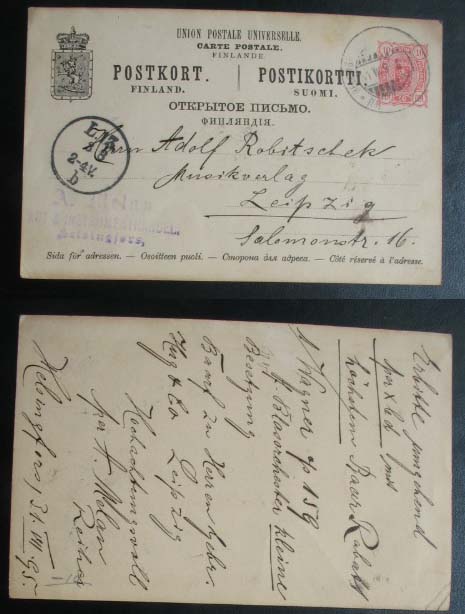 UNION POSTALE UNIVERSELLE.
CARTE POSTALE.
FINLANDE
POSTKORT. POSTIKORTTI.
FINLAND. SUOMI.
ОТКРЫТОЕ ПИСЬМО.
ФИНЛЯНДІЯ.
Herrn Adolf Robitschek
Musikverlag
Leipzig
Salomonstr. 16.
2-4V.
b
A. Melan
Helsingfors,
Sida för adressen. — Osoitteen puoli. — Сторона для адреса. — Côté réservé à l'adresse.
Erbitte umgehend
mit
höchstem Baar Rabatt
1 Wagner op 159
f. Blasorchester kleine
Besetzung
Baarf. zu Herren Gebr.
Hug & Co Leipzig
Hochachtungsvoll
per A. Melan
Helsingfors, 31. 95